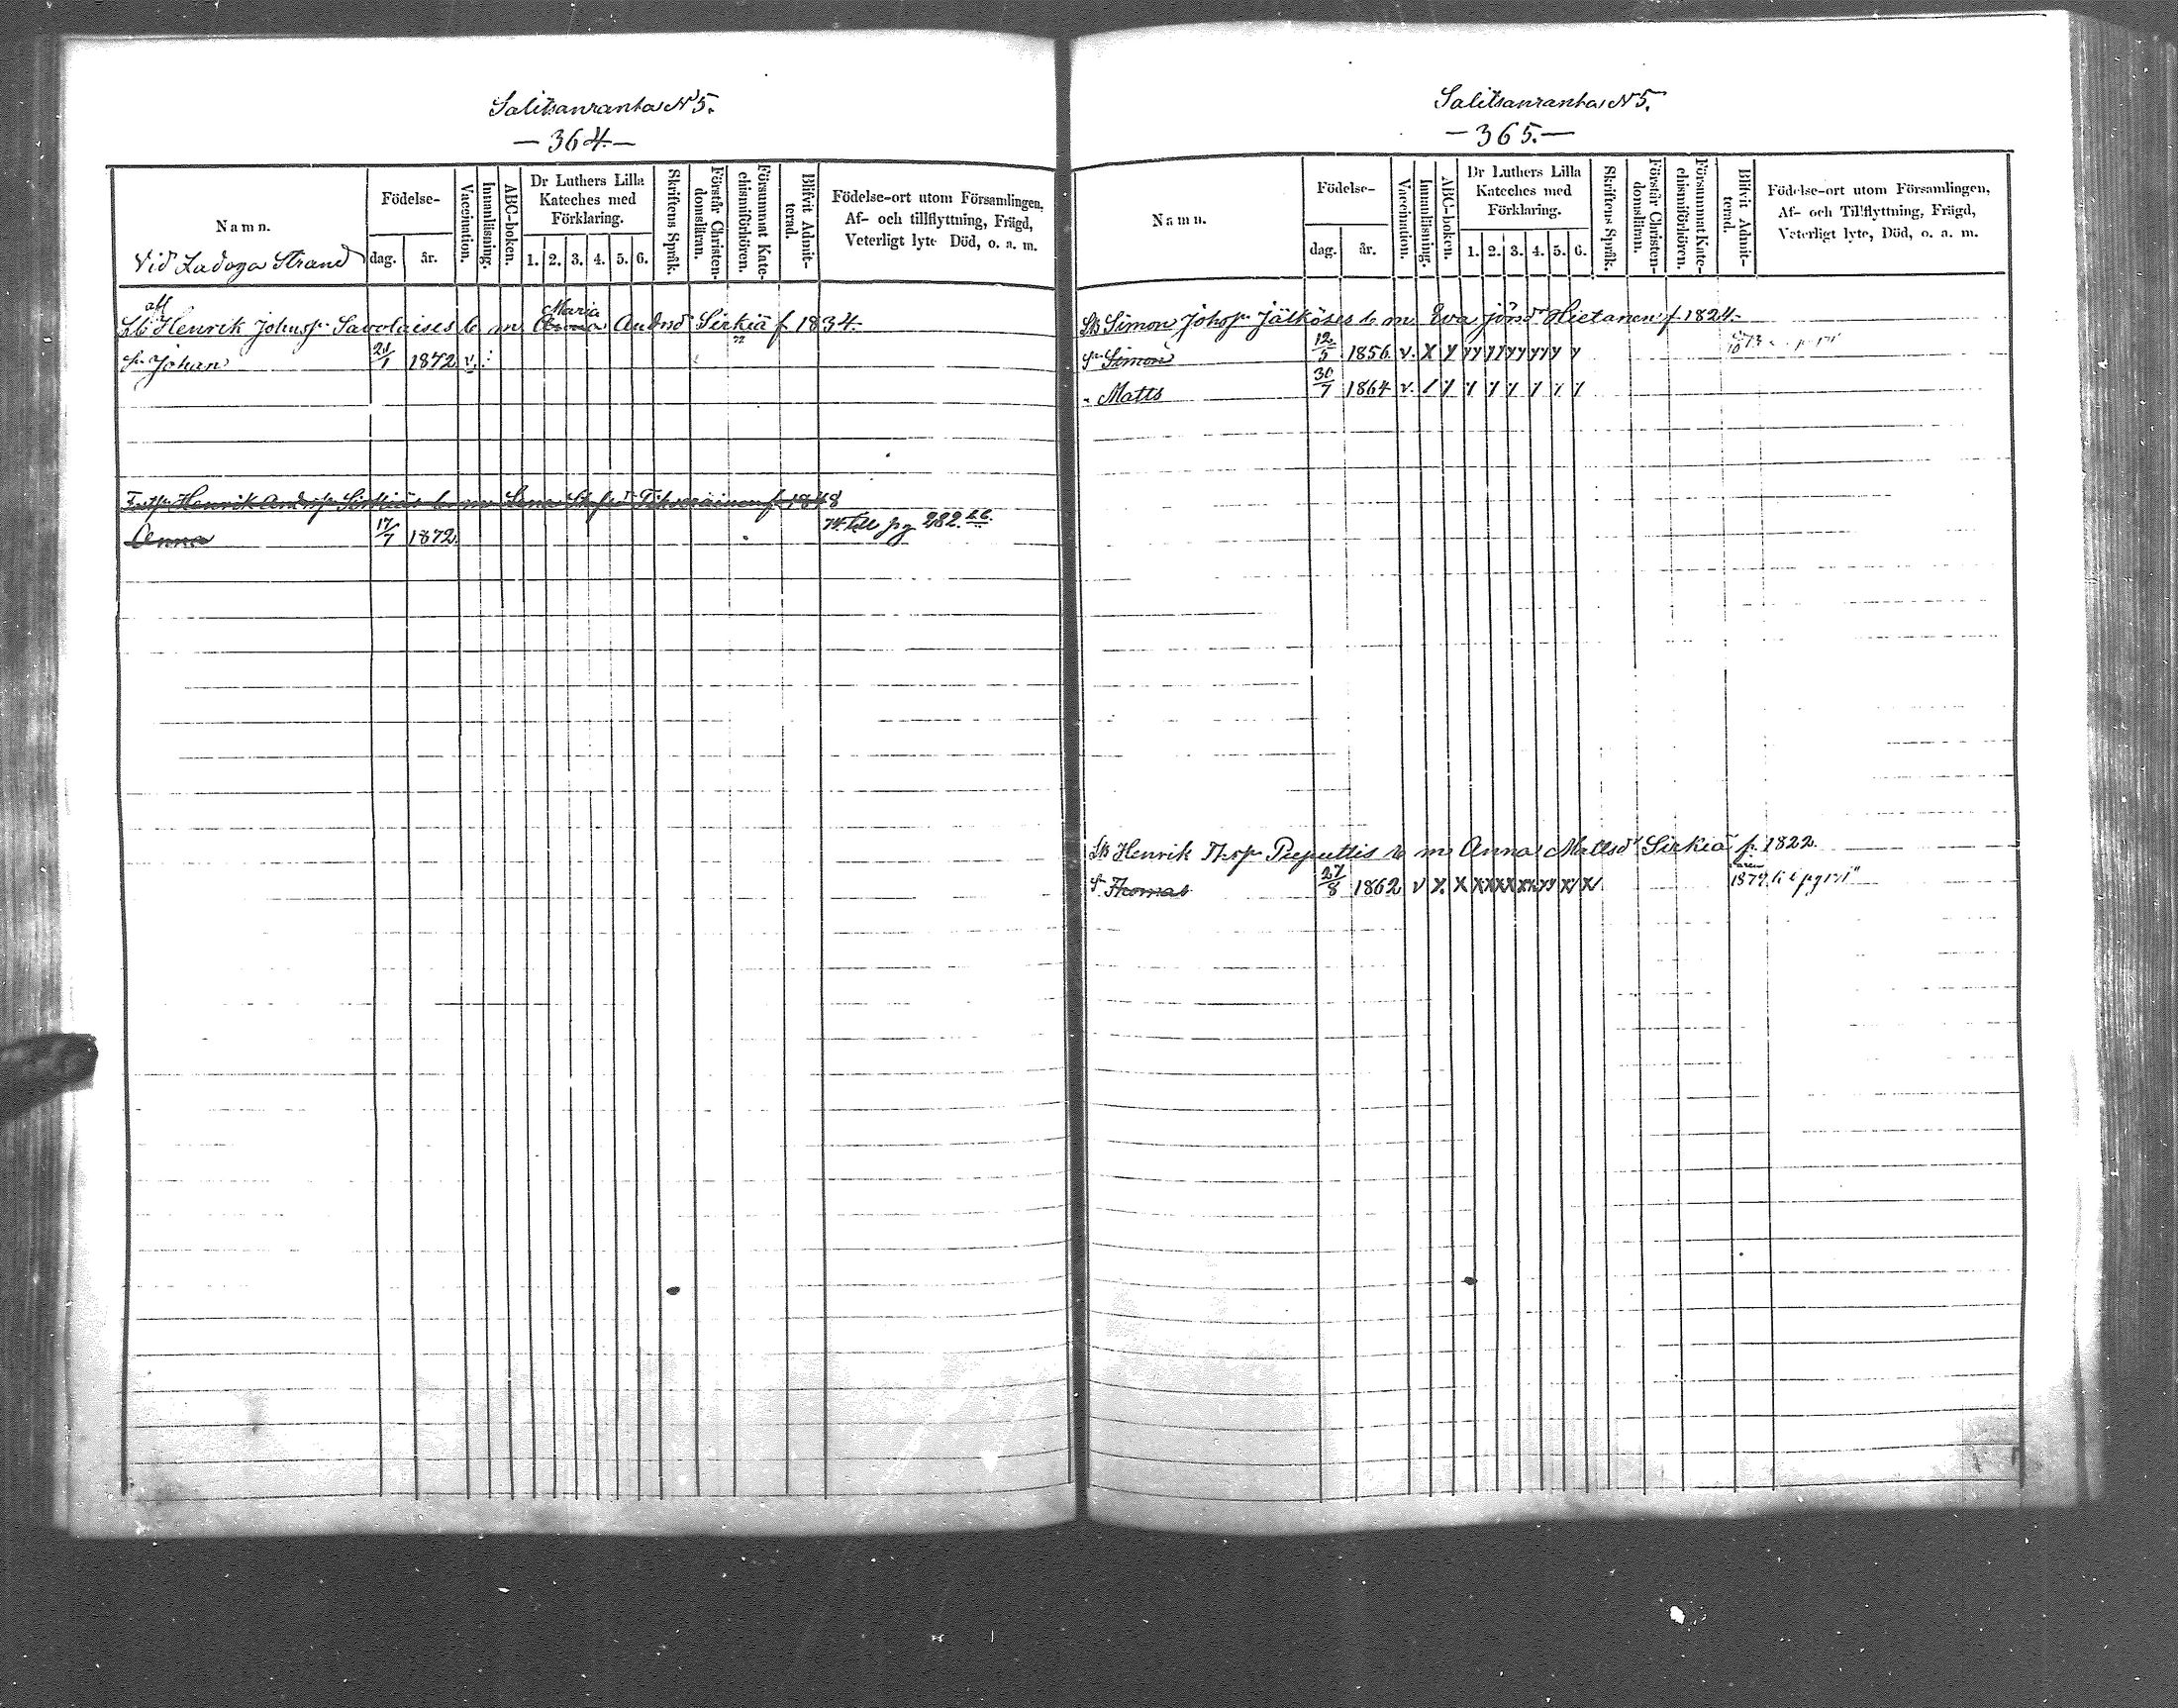 Salitsanranta N 5.
— 364 —
Namn.
Vid Ladoga Strand
Födelse-
dag.
år.
Vaccination.
Innanläsning.
ABC-boken.
Dr Luthers Lilla Kateches med Förklaring.
1. 2. 3. 4. 5. 6.
Skriftens Språk.
Förstår Christendomsläran.
Försummat Katechismiförhören.
Blifvit Admitterad.
Födelse-ort utom Församlingen,
Af- och tillflyttning, Frägd,
Veterligt lyte Död, o. a. m.
afl
Lb Henrik Johnsp Savolaises b m Anna Maria Andrsd Sirkiä f 1834.
Sn Johan 24/1 1872 v.
Henrik Andrsp Sirkiäs b m Lena f 1848
Anna 17/7 1872 till pg 282
Salitsanranta N 5.
— 365. —
Namn.
Födelse-
dag.
år.
Vaccination.
Innanläsning.
ABC-boken.
Dr Luthers Lilla Kateches med Förklaring.
1. 2. 3. 4. 5. 6.
Skriftens Språk.
Förstår Christen-domsläran.
Försummat Kate-chismiförhören.
Blifvit Admit-terad.
Födelse-ort utom Församlingen,
Af- och Tillflyttning, Frägd,
Veterligt lyte, Död, o. a. m.
Lb Simon Johsp Jälköses b m Eva Jönsd Hietanen f 1824.
Sn Simon 12/5 1856 v. X
- Matts 30/7 1864 v.
Lb Henrik Thsp Pieputtis b m Anna Mattsd Sirkiä f. 1822
Sn Thomas 27/8 1862 v X. X 1879